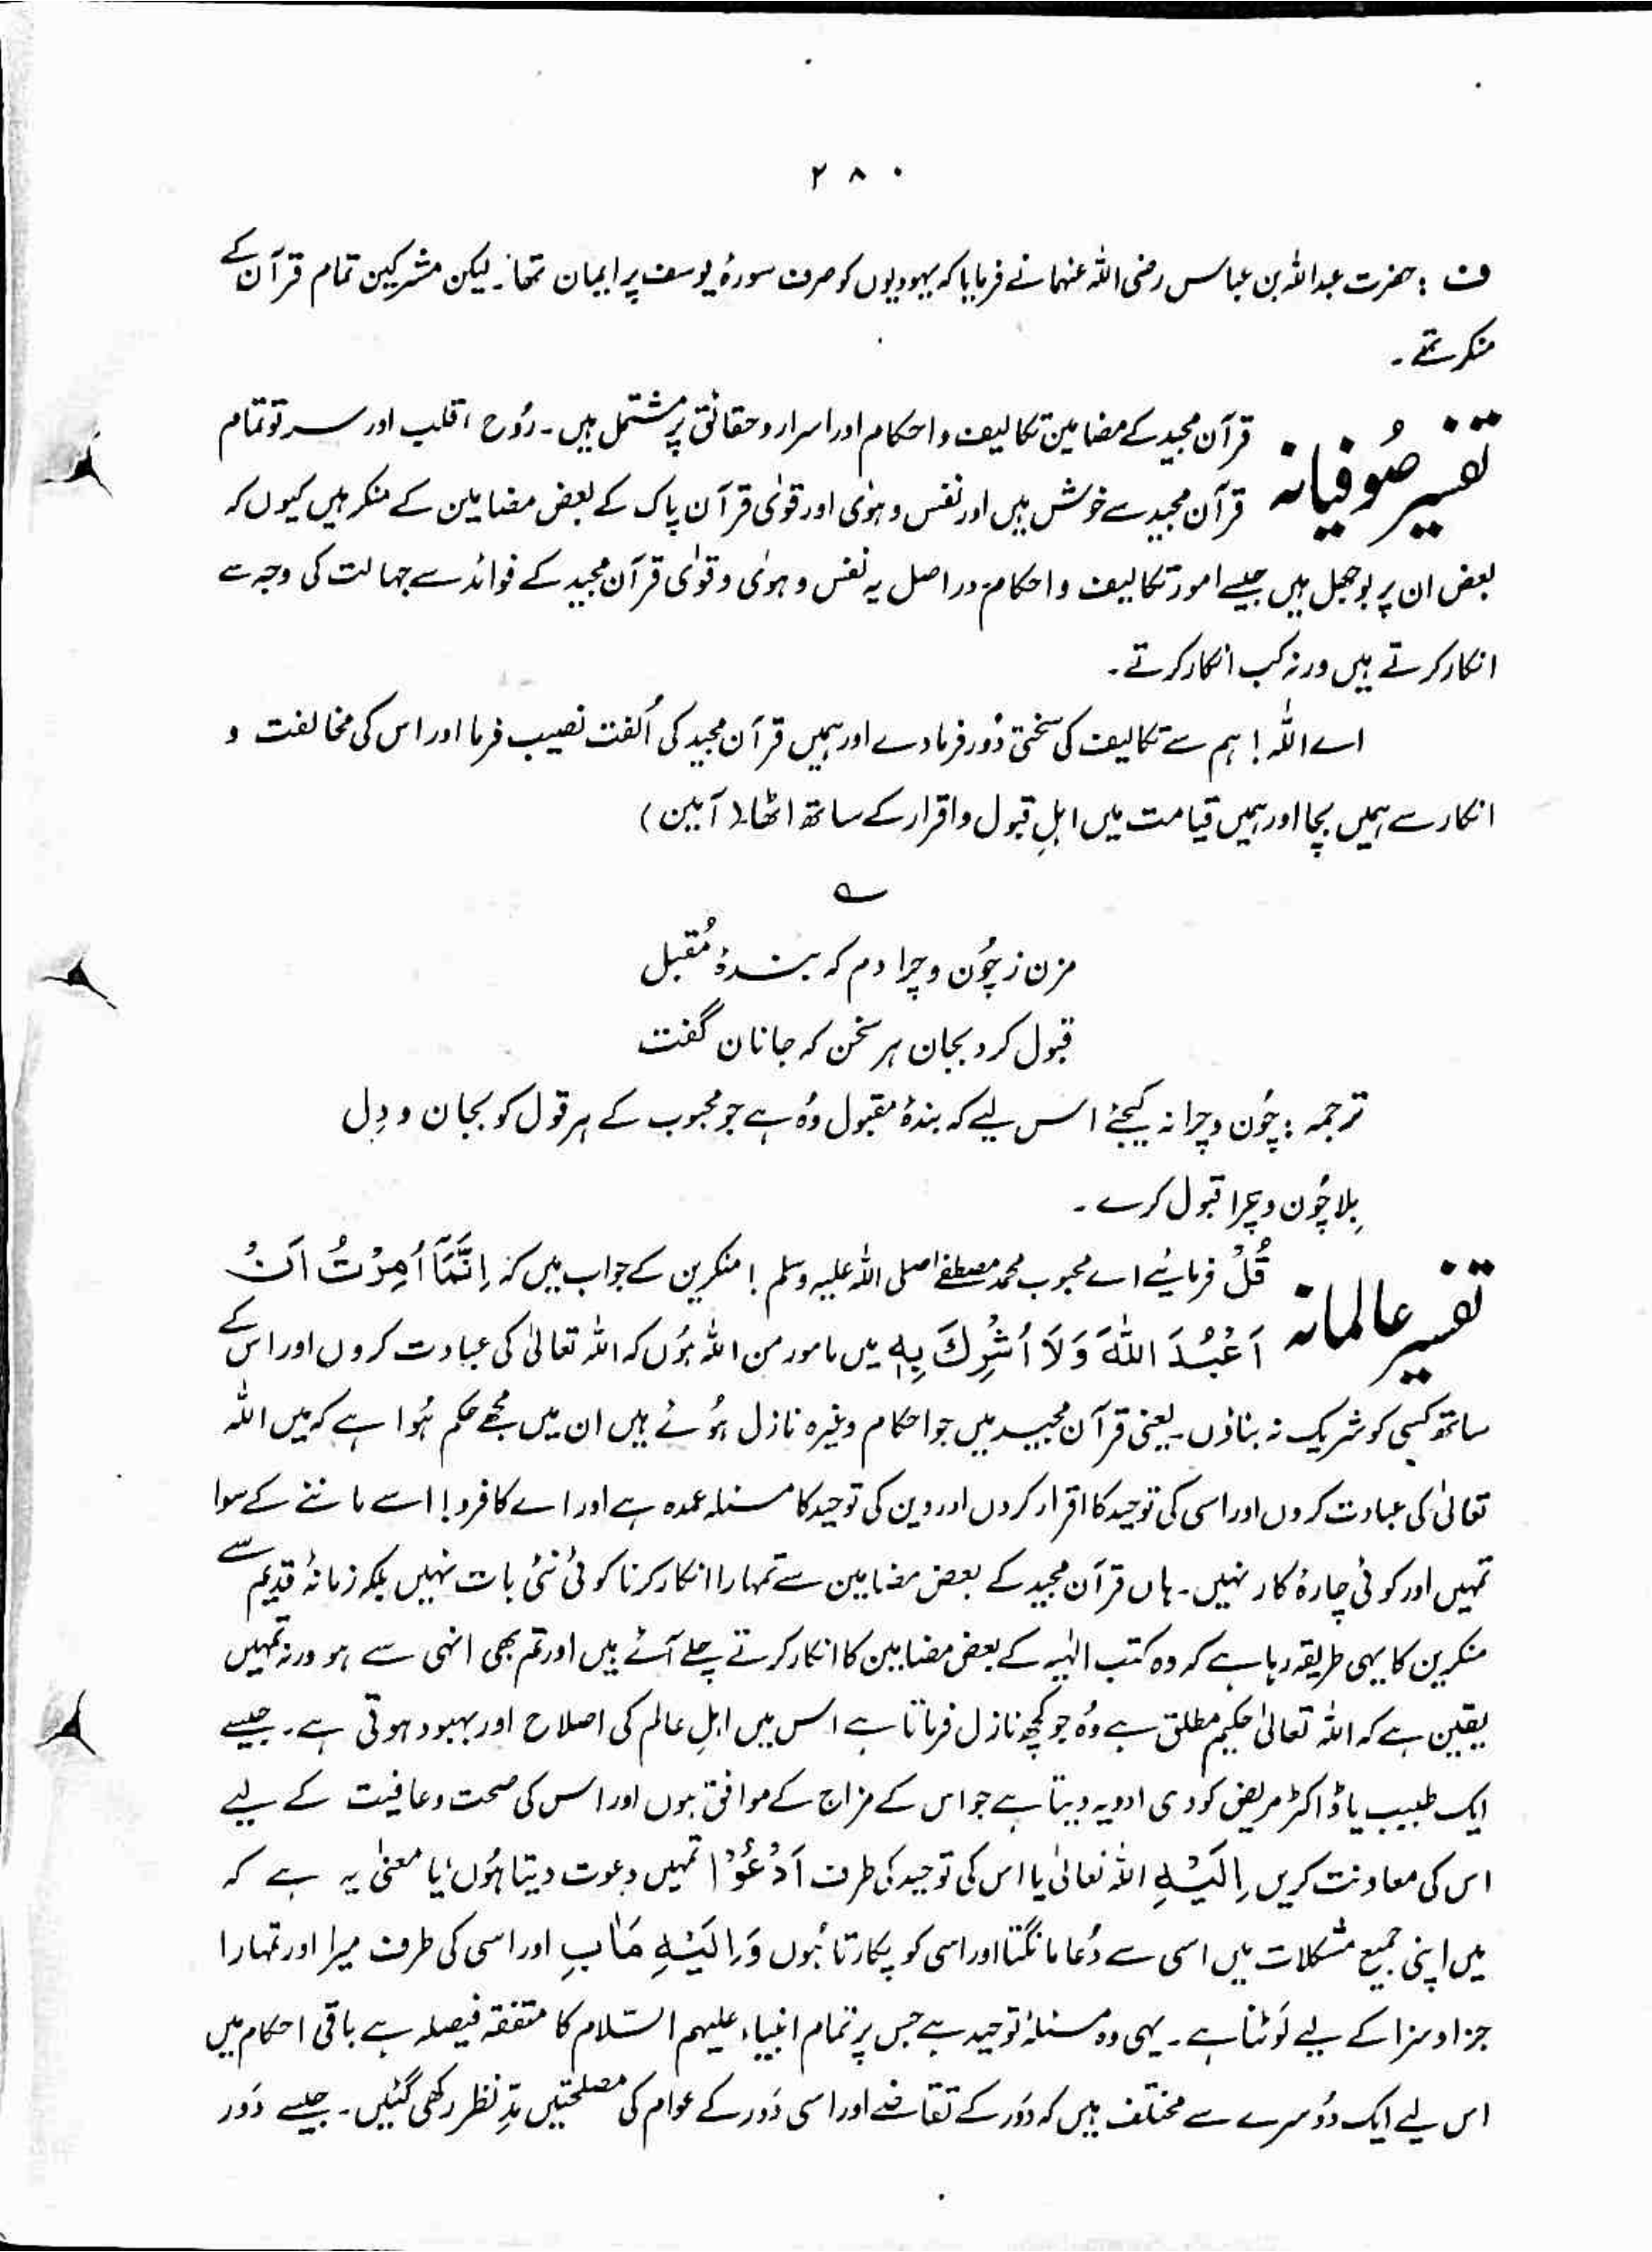 ۲۸۰
ف : حضرت عبداللہ بن عباس رضی اللہ عنہما نے فرمایا کہ یہودیوں کو صرف سورۂ یوسف پر ایمان تھا۔ لیکن مشرکین تمام قرآن کے
منکر تھے۔
تفسیر صُوفیانہ
قرآن مجید کے مضامین تکالیف و احکام اور اسرار و حقائق پر مشتمل ہیں۔ رُوح ، قلب اور سر تو تمام
قرآن مجید سے خوش ہیں اور نفس و ہوٰی اور قوٰی قرآن پاک کے بعض مضامین کے منکر ہیں کیوں کہ
بعض ان پر بوجھل ہیں جیسے امور تکالیف و احکام۔ دراصل یہ نفس و ہوٰی و قوٰی قرآن مجید کے فوائد سے جہالت کی وجہ سے
انکار کرتے ہیں ورنہ کب انکار کرتے۔
اے اللہ ! ہم سے تکالیف کی سختی دُور فرما دے اور ہمیں قرآن مجید کی اُلفت نصیب فرما اور اس کی مخالفت و
انکار سے ہمیں بچا اور ہمیں قیامت میں اہلِ قبول و اقرار کے ساتھ اٹھا۔ (آمین)
؎
مزن ز چُون و چرا دم کہ بندۂ مُقبل
قبول کرد بجان ہر سخن کہ جانان گفت
ترجمہ : چُون و چرا نہ کیجئے اس لیے کہ بندۂ مقبول وُہ ہے جو محبوب کے ہر قول کو بجان و دِل
بِلا چُون و چرا قبول کرے۔
تفسیر عالمانہ
قُلْ فرمائیے اے محبوب محمد مصطفےٰ صلی اللہ علیہ وسلم ! منکرین کے جواب میں کہ اِنَّمَآ اُمِرْتُ اَنْ
اَعْبُدَ اللّٰهَ وَلَآ اُشْرِكَ بِهٖ میں مامور من اللہ ہُوں کہ اللہ تعالیٰ کی عبادت کروں اور اس کے
ساتھ کسی کو شریک نہ بناؤں۔ یعنی قرآن مجید میں جو احکام وغیرہ نازل ہُوئے ہیں ان میں مجھے حکم ہُوا ہے کہ میں اللہ
تعالیٰ کی عبادت کروں اور اسی کی توحید کا اقرار کروں اور دین کی توحید کا مسئلہ عمدہ ہے اور اے کافرو ! اسے ماننے کے سوا
تمہیں اور کوئی چارۂ کار نہیں۔ ہاں قرآن مجید کے بعض مضامین سے تمہارا انکار کرنا کوئی نئی بات نہیں بلکہ زمانۂ قدیم سے
منکرین کا یہی طریقہ رہا ہے کہ وہ کتب الٰہیہ کے بعض مضامین کا انکار کرتے چلے آئے ہیں اور تم بھی انہی سے ہو ورنہ تمہیں
یقین ہے کہ اللہ تعالیٰ حکیم مطلق ہے وُہ جو کچھ نازل فرماتا ہے اس میں اہلِ عالم کی اصلاح اور بہبود ہوتی ہے۔ جیسے
ایک طبیب یا ڈاکٹر مریض کو وہی ادویہ دیتا ہے جو اس کے مزاج کے موافق ہوں اور اس کی صحت و عافیت کے لیے
اس کی معاونت کریں اِلَيْهِ اللہ تعالیٰ یا اس کی توحید کی طرف اَدْعُوْا تمہیں دعوت دیتا ہُوں یا معنیٰ یہ ہے کہ
میں اپنی جمیع مشکلات میں اسی سے دُعا مانگتا اور اسی کو پکارتا ہُوں وَاِلَيْهِ مَاٰبِ اور اسی کی طرف میرا اور تمہارا
جزا و سزا کے لیے لَوٹنا ہے۔ یہی وہ مسئلۂ توحید ہے جس پر تمام انبیاء علیہم السّلام کا متفقہ فیصلہ ہے باقی احکام میں
اس لیے ایک دُوسرے سے مختلف ہیں کہ دَور کے تقاضے اور اسی دَور کے عوام کی مصلحتیں مدِّ نظر رکھی گئیں۔ جیسے دَور